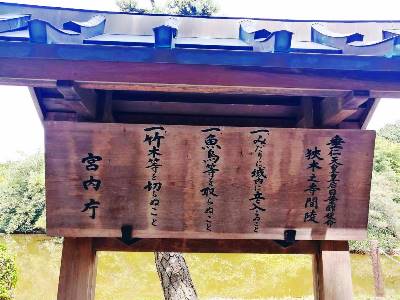 垂仁天皇皇后日葉酢媛命
狹木之寺間陵
一みだりに域内に立入らぬこと
一魚鳥等を取らぬこと
一竹木等を切らぬこと
宮内庁